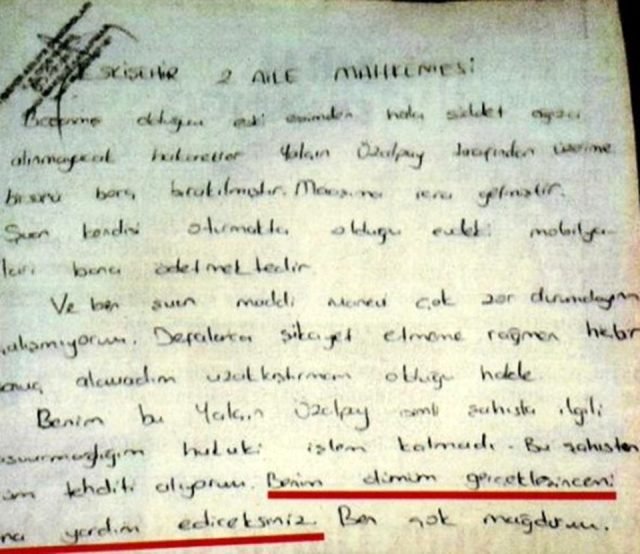 ESKİŞEHİR 2 AİLE MAHKEMESİ
Boşanmış olduğum eski eşimden hala şiddet ağıza
alınmayacak hakaretler Yalçın Özalpay tarafından üzerime
borç bırakılmıştır. Maaşıma icra gelmiştir.
Şuan kendisi oturmakta olduğu evdeki mobilya
ları bana ödetmektedir.
Ve ben şuan maddi manevi çok zor durumdayım
çalışmıyorum. Defalarca şikayet etmeme rağmen hebir
alamadım uzaklaştırmam olduğu halde.
Benim bu Yalçın Özalpay isimli şahısla ilgili
hukuki işlem kalmadı. Bu şahıstan
tehditi alıyorum. Benim ölümüm gerçekleşincemi
yardım ediceksiniz. Ben çok mağdurum.